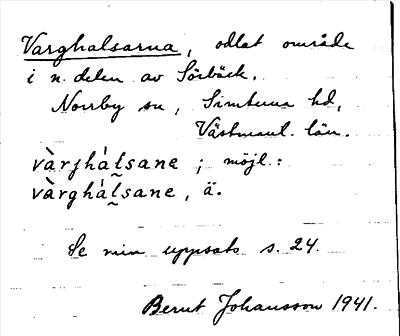 Varghalsarna, odlat område
i n. delen av Sörbäck.
Norrby sn, Simtuna hd,
Västmanl. län.
vàrjhál̰sane ; möjl.:
vàrghál̰sane, ä.
Se min uppsats s. 24.
Bernt Johansson 1941.